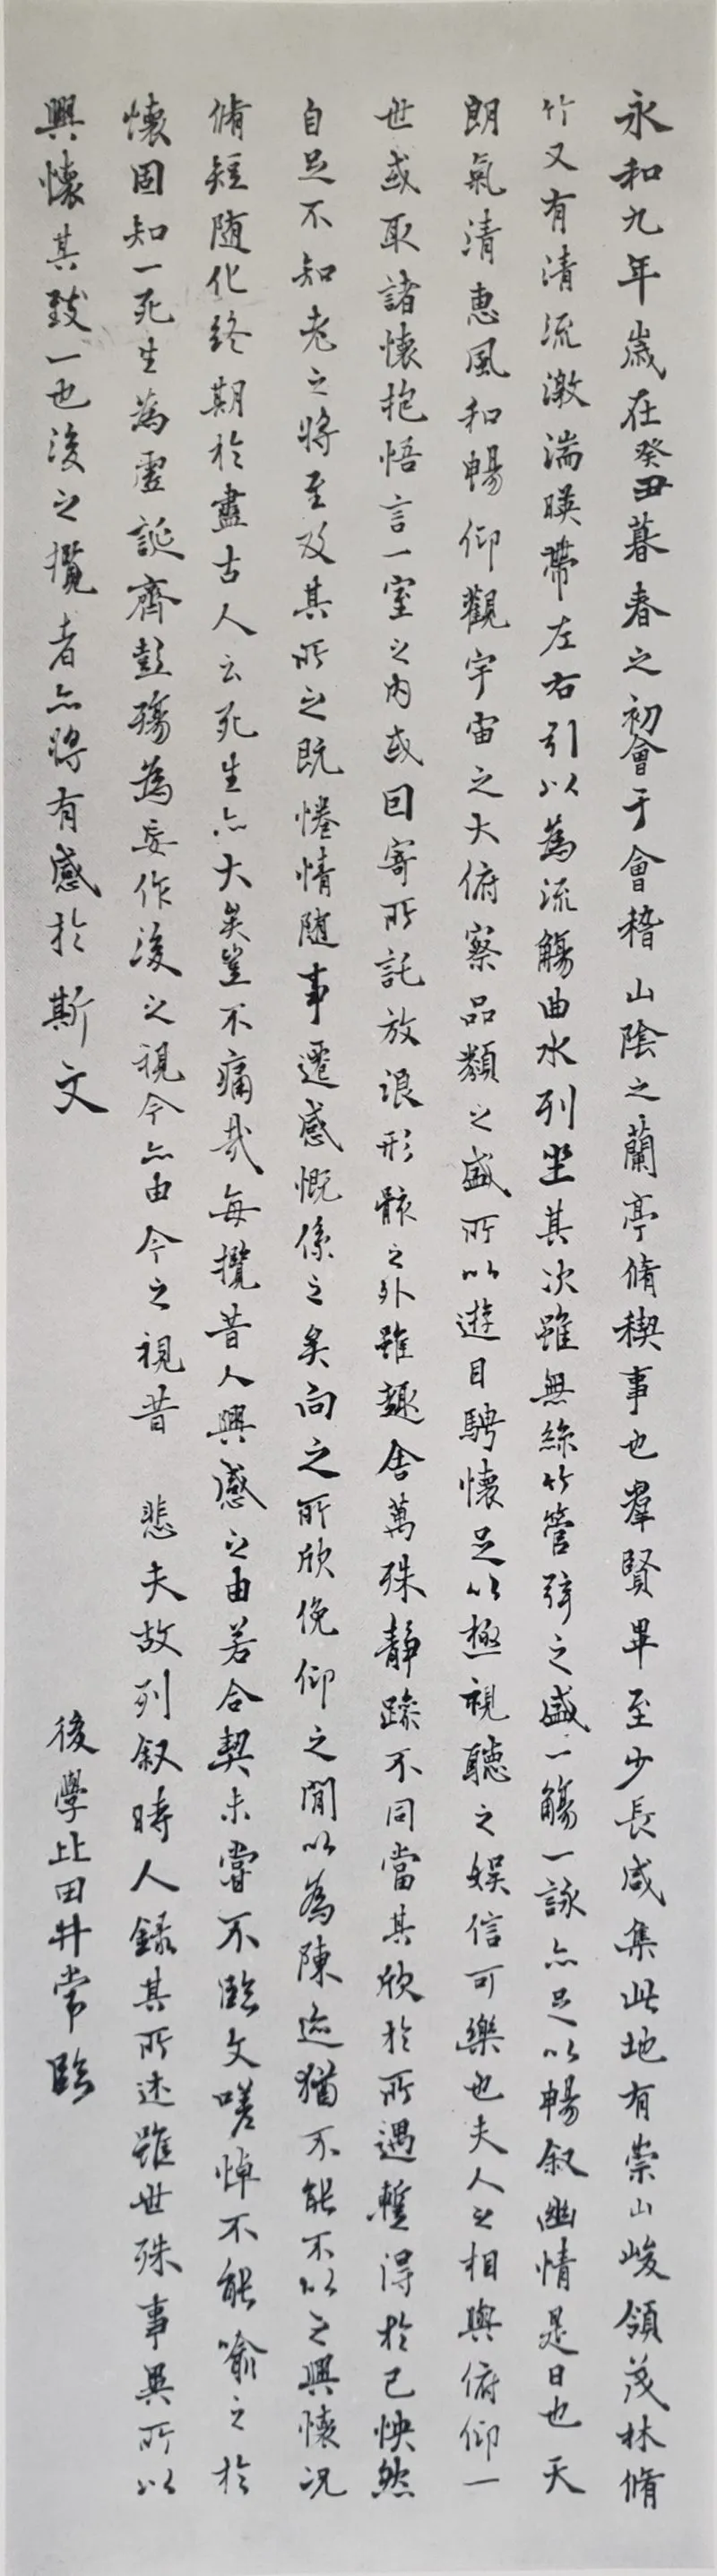 永和九年歲在癸丑暮春之初會于會稽山陰之蘭亭脩稧事也羣賢畢至少長咸集此地有崇山峻領茂林脩
竹又有清流激湍暎帶左右引以為流觴曲水列坐其次雖無絲竹管弦之盛一觴一詠亦足以暢叙幽情是日也天
朗氣清惠風和暢仰觀宇宙之大俯察品類之盛所以遊目騁懷足以極視聽之娛信可樂也夫人之相與俯仰一
世或取諸懷抱悟言一室之內或因寄所託放浪形骸之外雖趣舍萬殊靜躁不同當其欣於所遇暫得於己怏然
自足不知老之將至及其所之既惓情隨事遷感慨係之矣向之所欣俛仰之閒以為陳迹猶不能不以之興懷況
脩短隨化終期於盡古人云死生亦大矣豈不痛哉每攬昔人興感之由若合一契未嘗不臨文嗟悼不能喻之於
懷固知一死生為虛誕齊彭殤為妄作後之視今亦由今之視昔 悲夫故列叙時人錄其所述雖世殊事異所以
興懷其致一也後之攬者亦將有感於斯文
後學比田井常臨